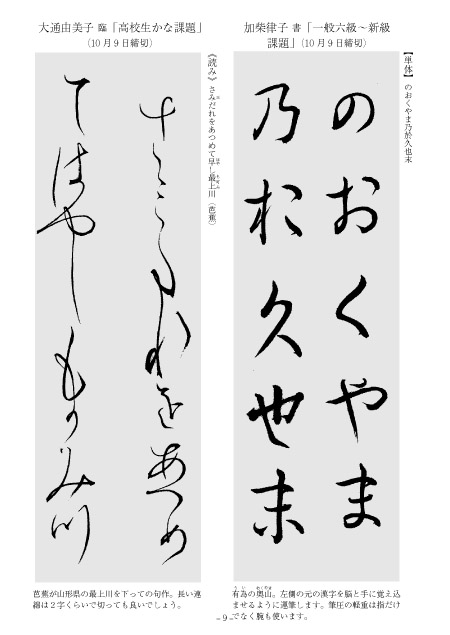 加柴律子 書「一般六級～新級
課題」(10月9日締切)
【単体】 のおくやま乃於久也末
のおくやま
乃於久也末
有為の奥山。左側の元の漢字を脳と手に覚え込
ませるように運筆します。筆圧の軽重は指だけ
でなく腕も使います。
大通由美子 臨「高校生かな課題」
(10月9日締切)
《読み》 さみだれをあつめて早し最上川 (芭蕉)
さみたれをあつめ
てはやしもかみ川
芭蕉が山形県の最上川を下っての句作。長い連
綿は２字くらいで切っても良いでしょう。
- 9 -